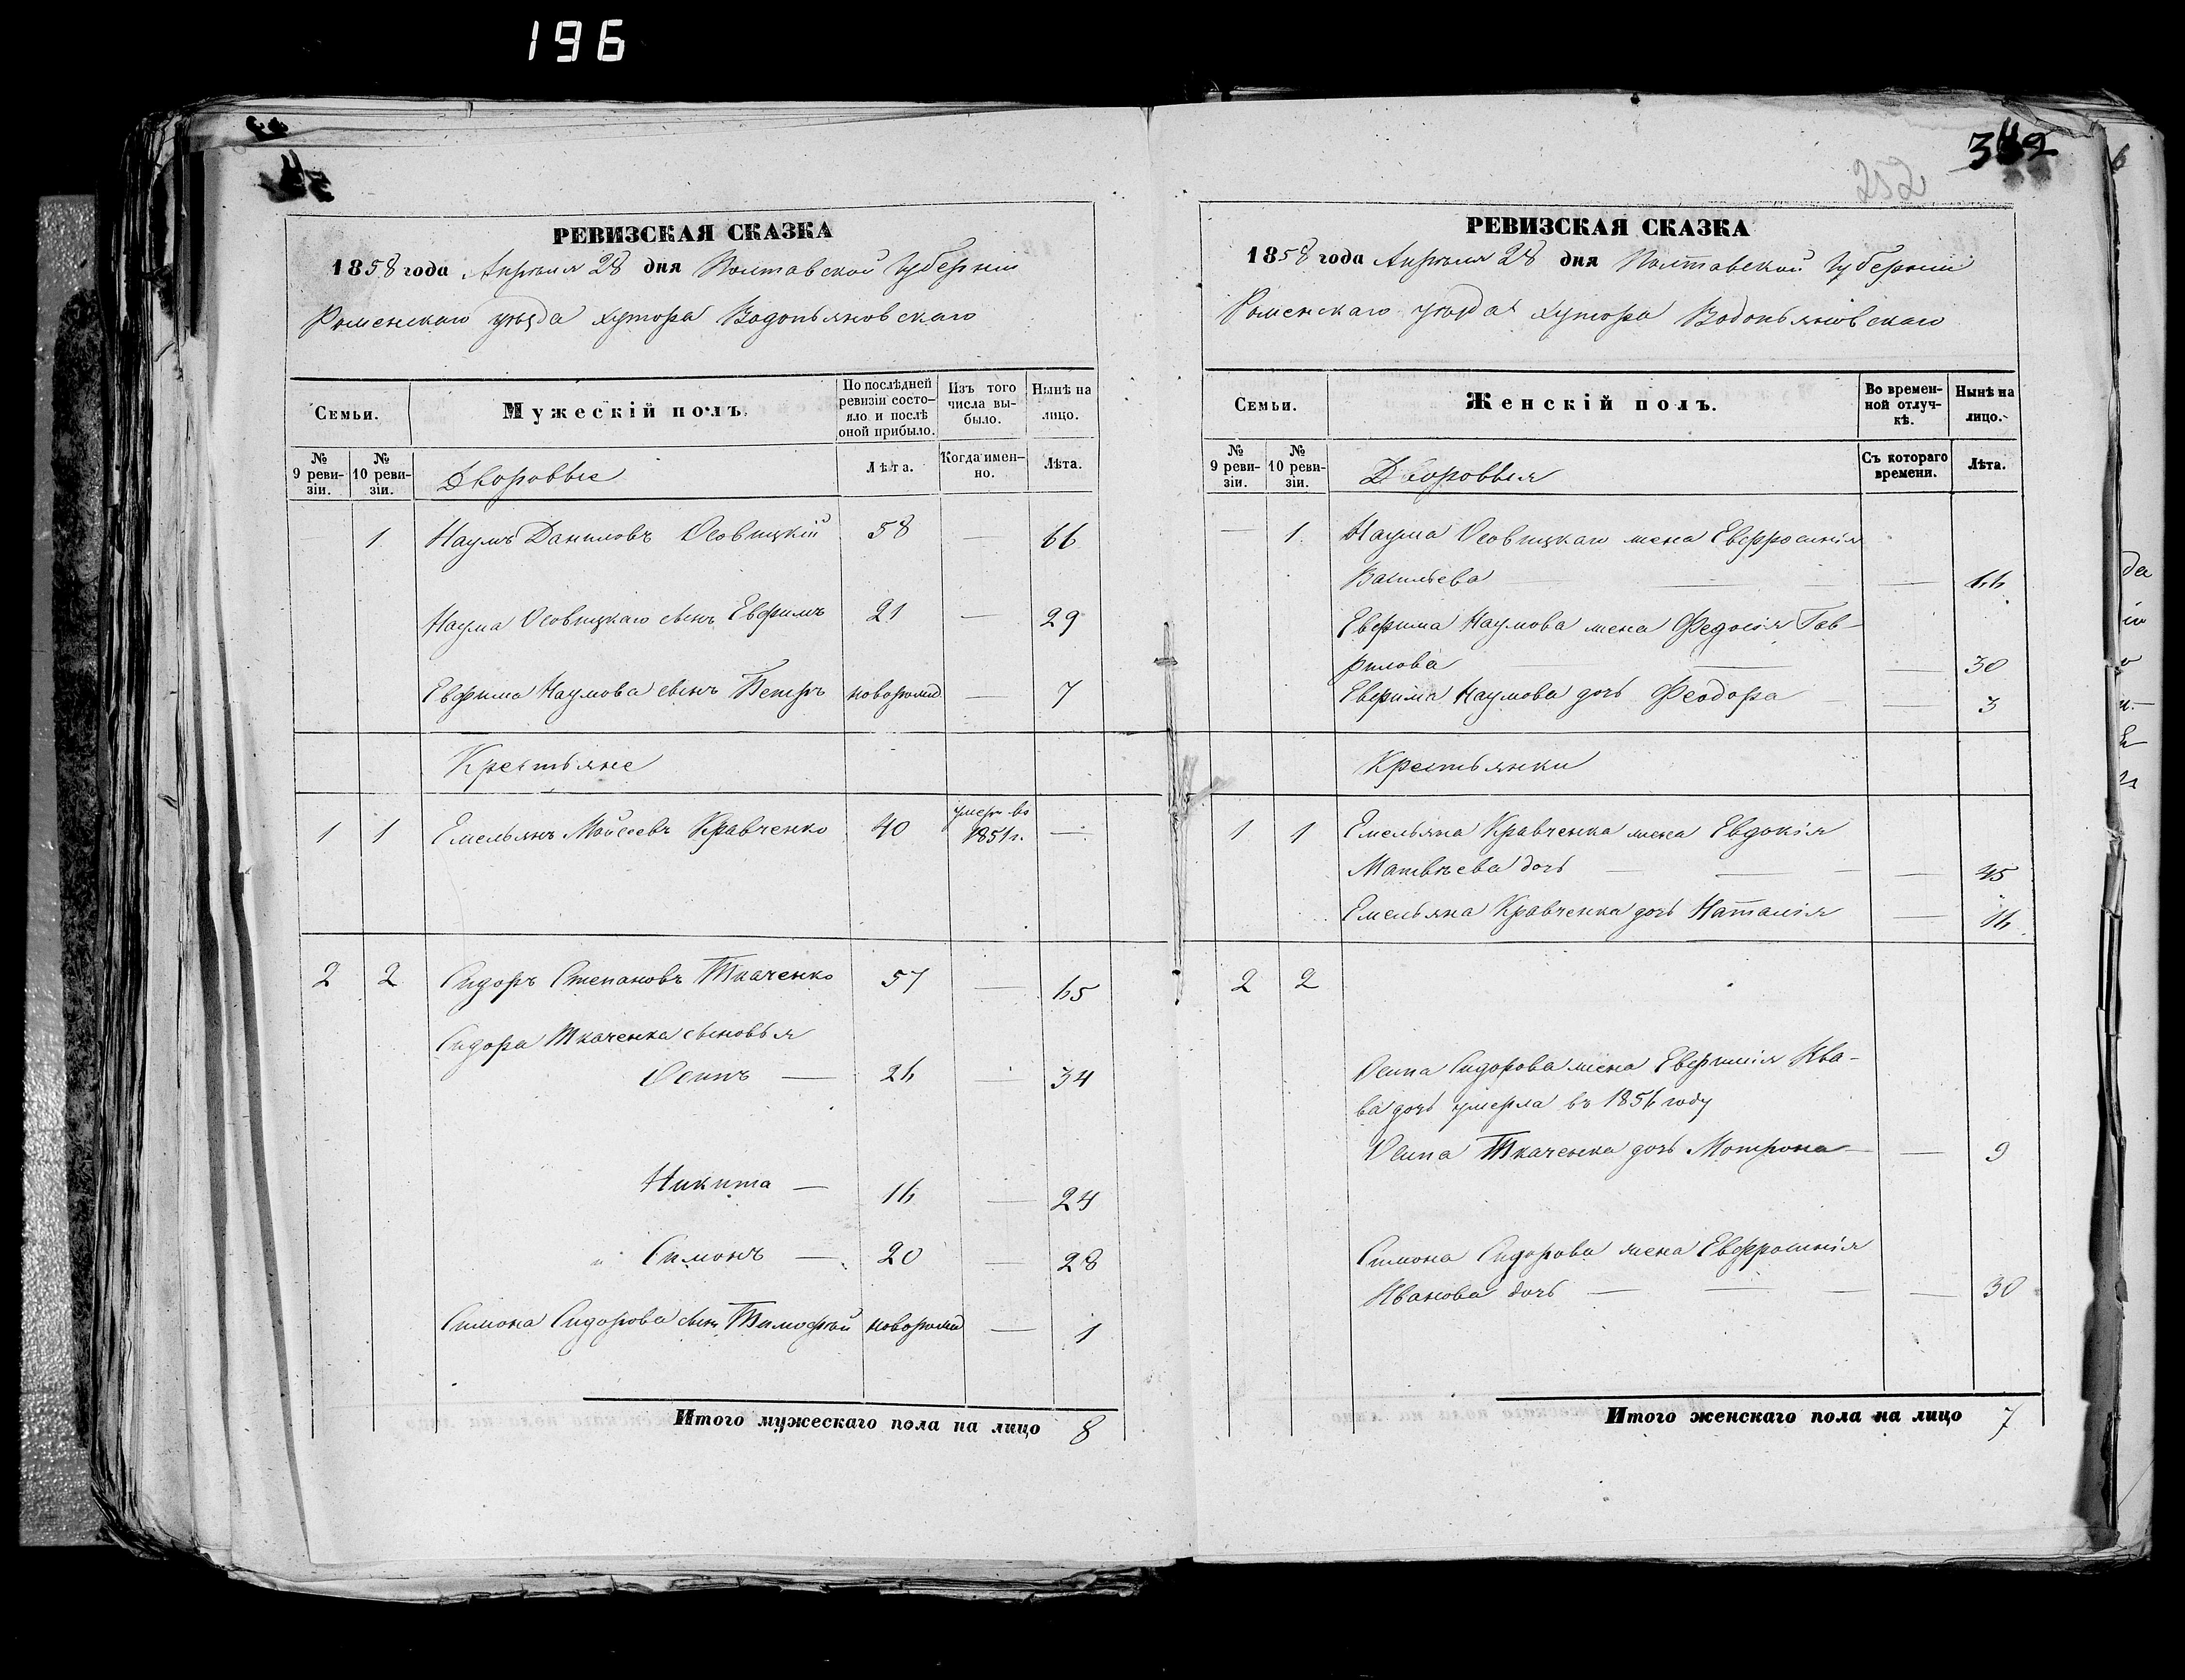 196
РЕВИЗСКАЯ СКАЗКА
1858 года Апрѣля 28 дня Полтавской Губерніи
Роменскаго уѣзда хутора Водопьяновскаго
Семьи.
Мужескій полъ.
По послѣдней ревизіи состояло и послѣ оной прибыло.
Изъ того числа выбыло.
Нынѣ на лицо.
№ 9 ревизіи.
№ 10 ревизіи.
Дворовые
Лѣта.
Когда именно.
Лѣта.
1 Наумъ Даниловъ Осовицкій 58 — 66
Наума Осовицкаго сынъ Евфимъ 21 — 29
Евфима Наумова сынъ Петръ новорожд — 7
Крестьяне
1 1 Емельянъ Мойсеевъ Кравченко 40 умеръ въ 1851 г. —
2 2 Сидоръ Степановъ Ткаченко 57 — 65
Сидора Ткаченка сыновья
Осипъ — 26 — 34
Никита — 16 — 24
и Симонъ — 20 — 28
Симона Сидорова сынъ Тимофей новорожд — 1
Итого мужескаго пола на лицо 8
252
РЕВИЗСКАЯ СКАЗКА
1858 года Апрѣля 28 дня Полтавской Губерніи
Роменскаго уѣзда хутора Водопьяновскаго
Семьи.
Женскій полъ.
Во временной отлучкѣ.
Нынѣ на лицо.
№ 9 ревизіи.
№ 10 ревизіи.
Дворовыя
Съ котораго времени.
Лѣта.
— 1. Наума Осовицкаго жена Евфросинія
Васильева — — — 66
Евфима Наумова жена Федосія Гав-
рилова — — — 30
Евфима Наумова дочь Феодора — — 3
Крестьянки
1 1 Емельяна Кравченка жена Евдокія
Матвѣева дочь — — — — 45
Емельяна Кравченка дочь Наталія — 16
2 2
Осипа Сидорова жена Евфимія Ква-
ва дочь умерла въ 1856 году
Осипа Ткаченка дочь Мотрона — — 9
Симона Сидорова жена Евфросинія
Иванова дочь — — — — 30
Итого женскаго пола на лицо 7